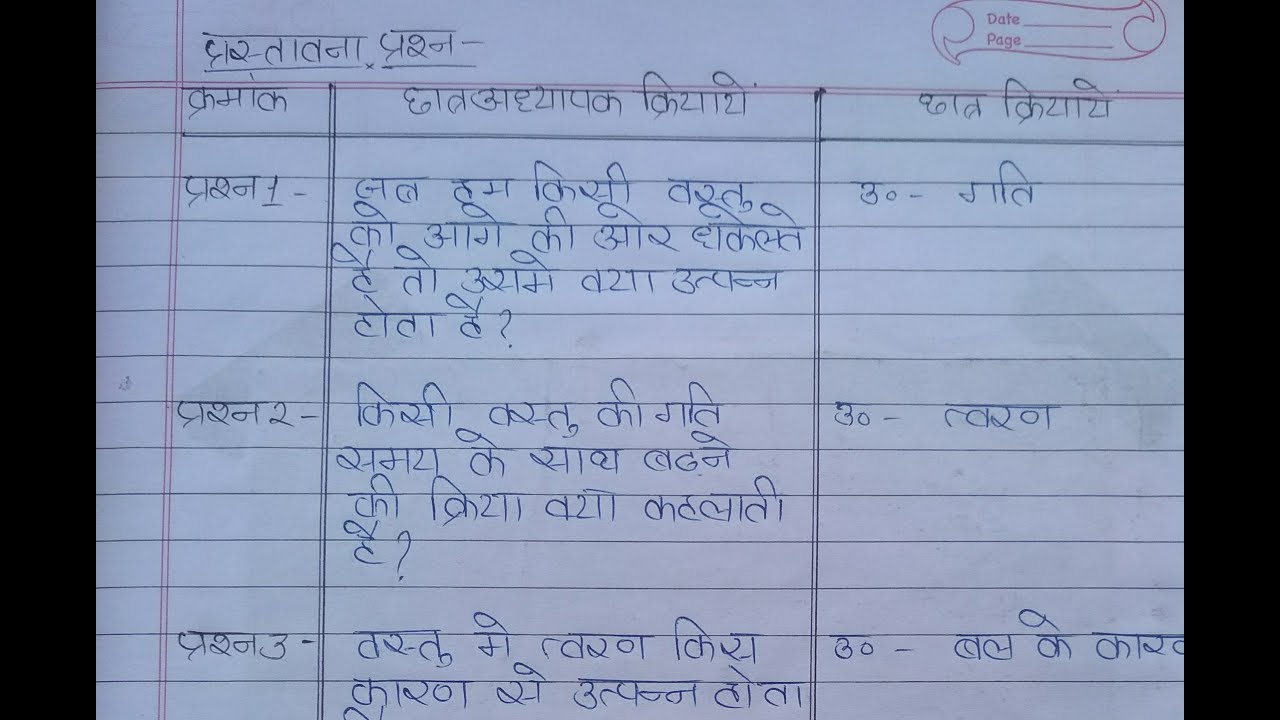 Date
Page
प्रस्तावना प्रश्न -
क्रमांक छात्रअध्यापक क्रियायें छात्र क्रियायें
प्रश्न 1 - जब हम किसी वस्तु उ० - गति
को आगे की ओर धकेलते
है तो उसमे क्या उत्पन्न
होता है?
प्रश्न 2 - किसी वस्तु की गति उ० - त्वरण
समय के साथ बढ़ने
की क्रिया क्या कहलाती
है?
प्रश्न 3 - वस्तु मे त्वरण किस उ० - बल के कार
कारण से उत्पन्न होता